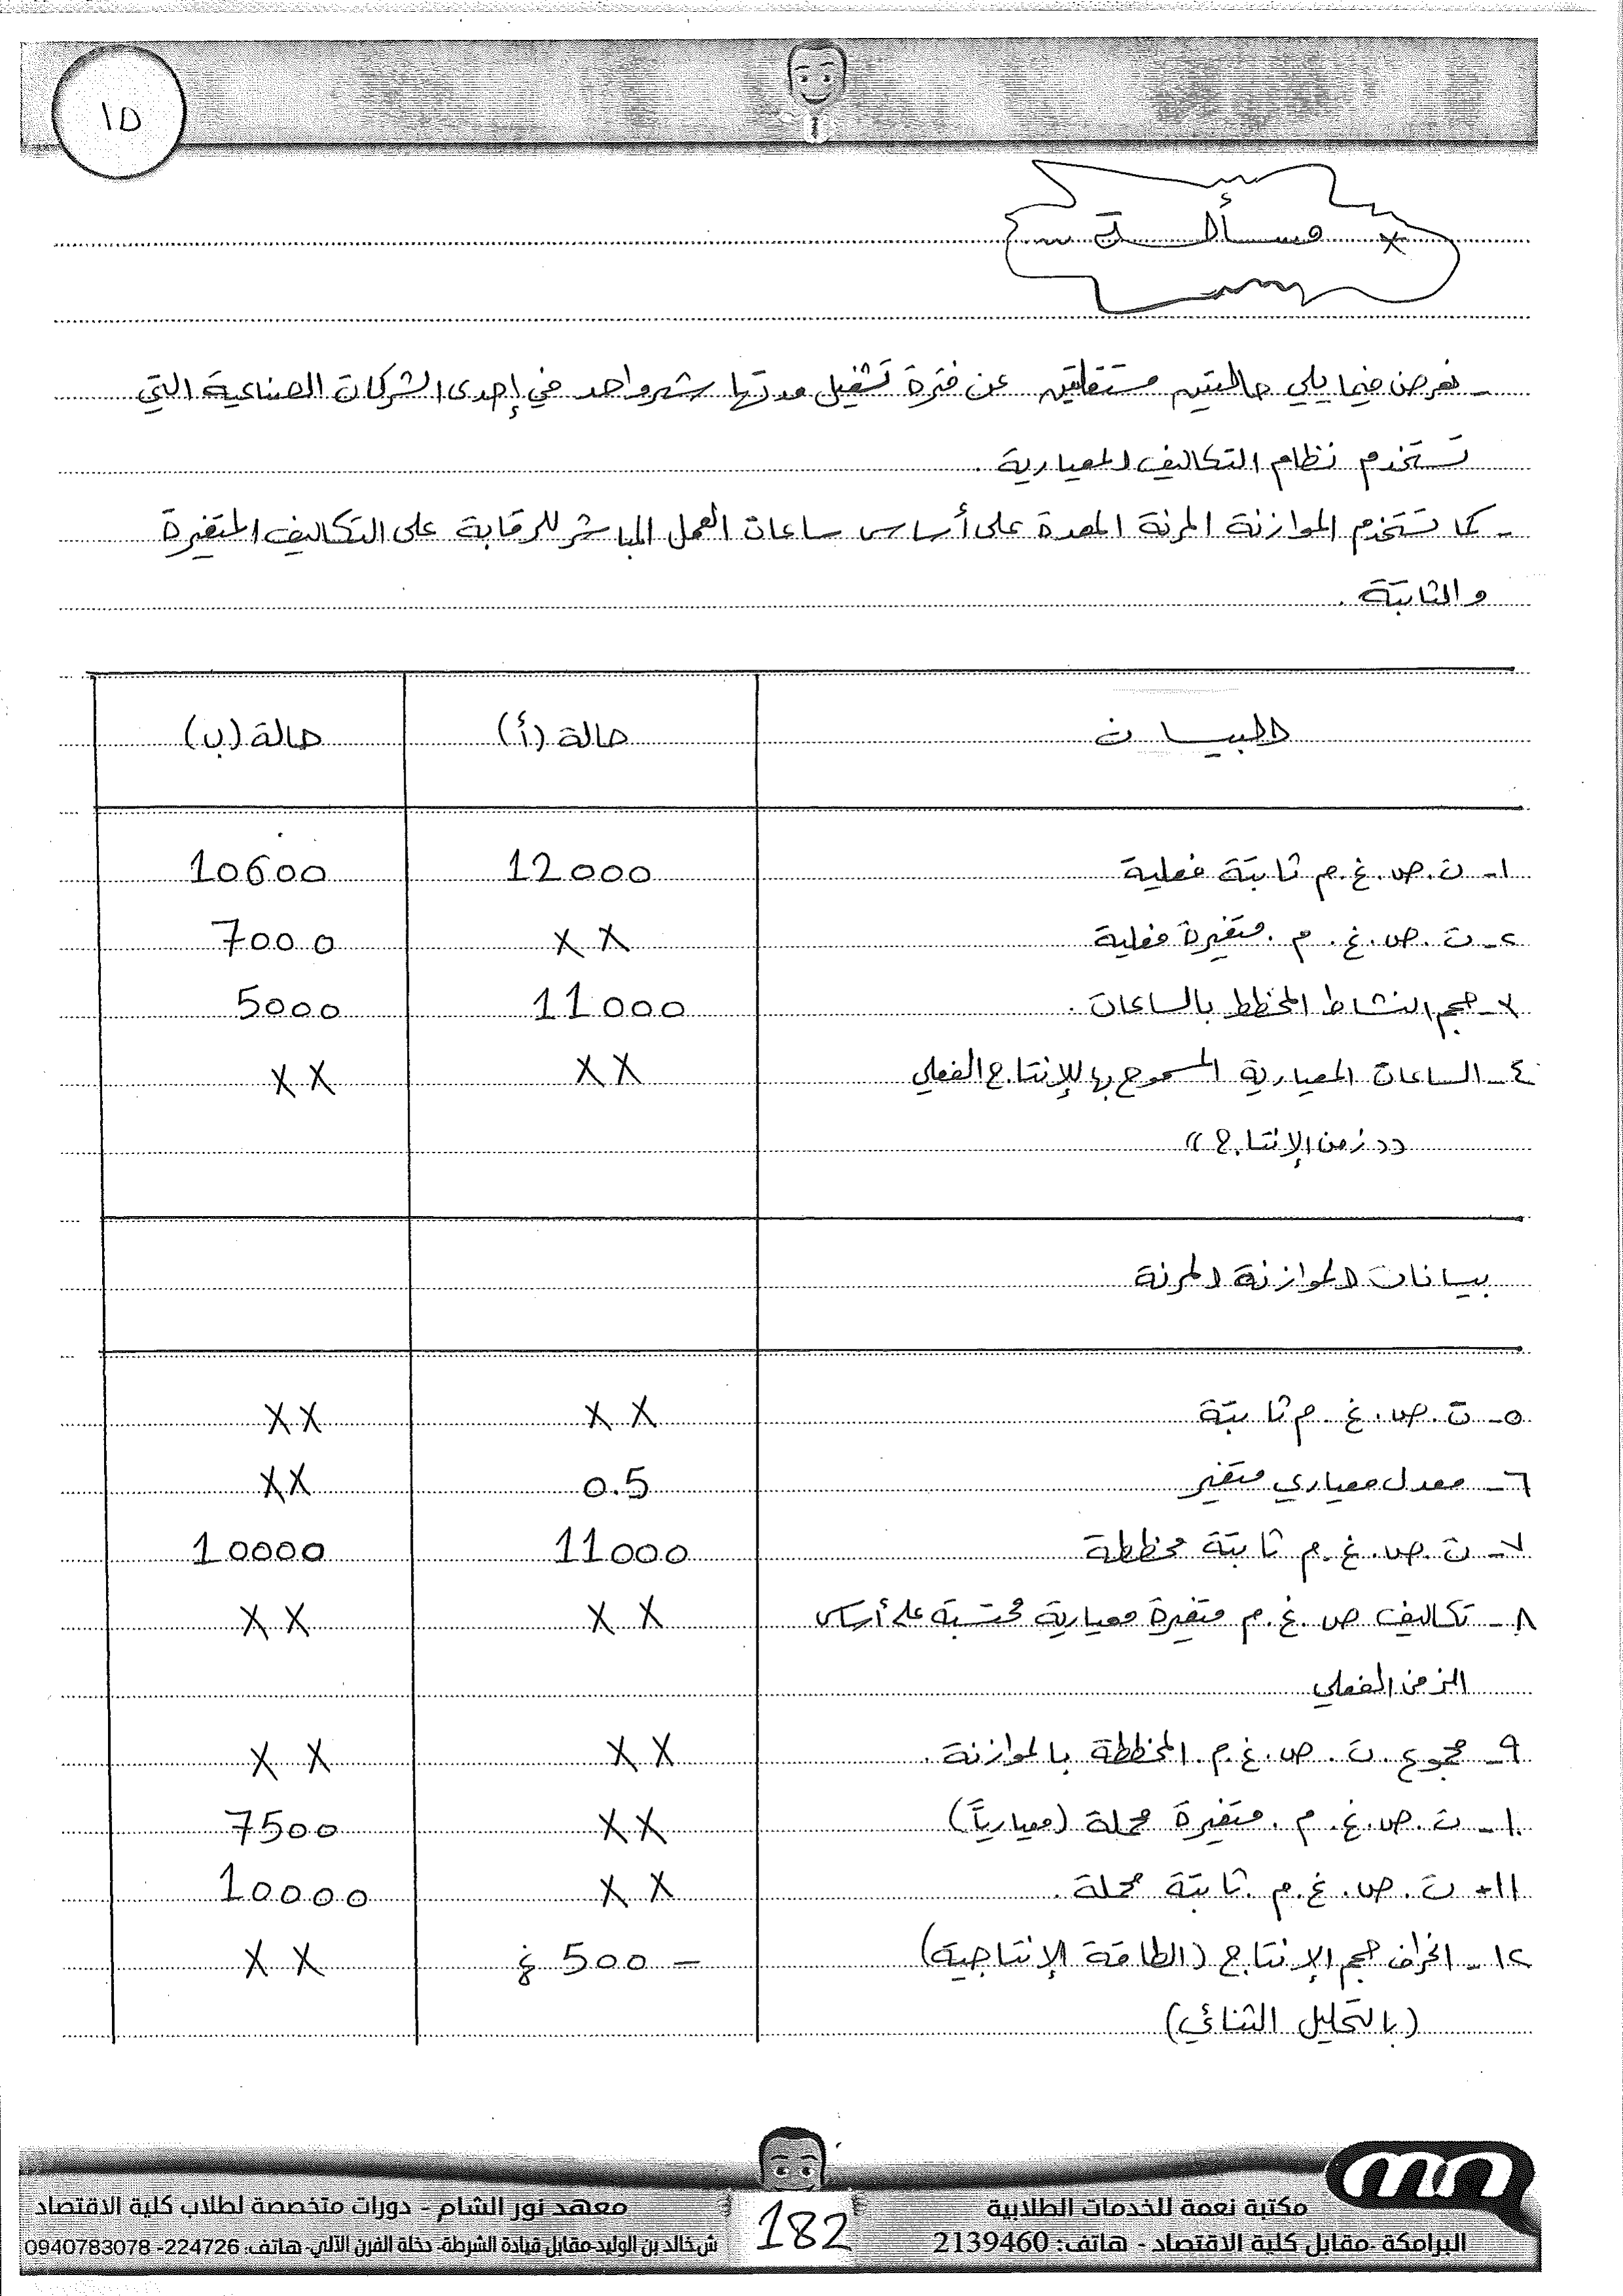 ١٥
* مسألة
- نعرض فيما يلي حالتين مستقلتين عن فترة تشغيل مدتها شهر واحد في إحدى الشركات الصناعية التي
تستخدم نظام التكاليف المعيارية .
- كما تستخدم الموازنة المرنة المعدة على أساس ساعات العمل المباشر للرقابة على التكاليف المتغيرة
والثابتة .
البيان حالة (أ) حالة (ب)
١- ت.ص.غ.م ثابتة فعلية 12000 10600
٢- ت.ص.غ.م. متغيرة فعلية XX 7000
٣- حجم النشاط المخطط بالساعات . 11000 5000
٤- الساعات المعيارية المسموح بها للإنتاج الفعلي XX XX
"زمن الإنتاج"
بيانات الموازنة المرنة
٥- ت.ص.غ.م ثابتة XX XX
٦- معدل معياري متغير 0.5 XX
٧- ت.ص.غ.م ثابتة مخططة 11000 10000
٨- تكاليف ص.غ.م متغيرة معيارية محتسبة على أساس XX XX
الزمن الفعلي
٩- مجموع ت.ص.غ.م. المخططة بالموازنة . XX XX
١٠- ت.ص.غ.م. متغيرة محملة (معيارياً) XX 7500
١١- ت.ص.غ.م. ثابتة محملة . XX 10000
١٢- انحراف حجم الإنتاج (الطاقة الإنتاجية) - 500 غ XX
(بالتحليل الثنائي)
مكتبة نعمة للخدمات الطلابية
البرامكة -مقابل كلية الاقتصاد - هاتف: 2139460
182
معهد نور الشام - دورات متخصصة لطلاب كلية الاقتصاد
ش خالد بن الوليد-مقابل قيادة الشرطة- دخلة الفرن الآلي- هاتف: 224726- 0940783078